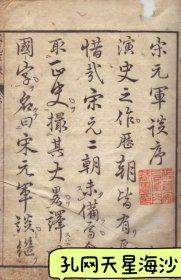 宋元軍談序
演史之作歷朝皆有
惜哉宋元二朝未備
取正史撮其大畧譯
國字名曰宋元軍談繼
孔网天星海沙